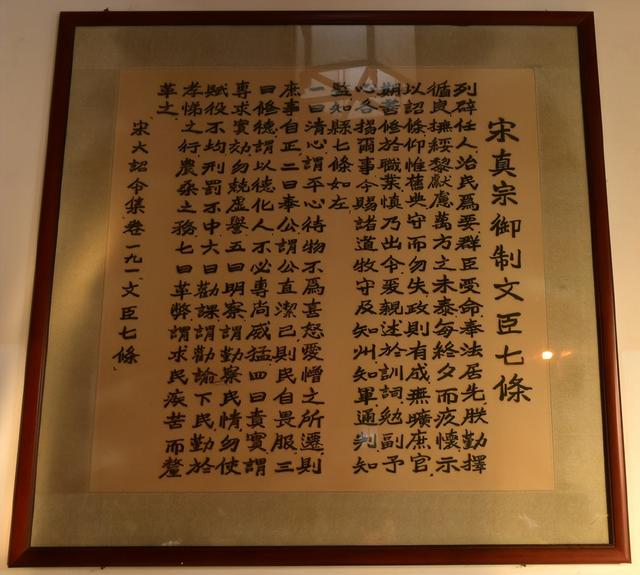 宋真宗御制文臣七條
列辟任人治民爲要群臣受命奉法居先朕勤擇
循良撫綏黎獻慮萬方之未泰每終夕而疚懷示
以詔條仰惟舊典守而勿失政則有成無曠庶官
期善修於職業慎乃出令爰親述於訓詞勉副予
心各揚爾事今賜諸道牧守及知州知軍通判知
監知縣七條如左
一曰清心謂平心待物不爲喜怒愛憎之所遷則
庶事自正二曰奉公謂公直潔己則民自畏服三
曰修德謂以德化人不必專尚威猛四曰責實謂
專求實効勿競虛譽五曰明察謂勤察民情勿使
賦役不均刑罰不中六曰勸課謂勸諭下民勤於
孝悌之行農桑之務七曰革弊謂求民疾苦而釐
革之
宋大詔令集卷一九一文臣七條